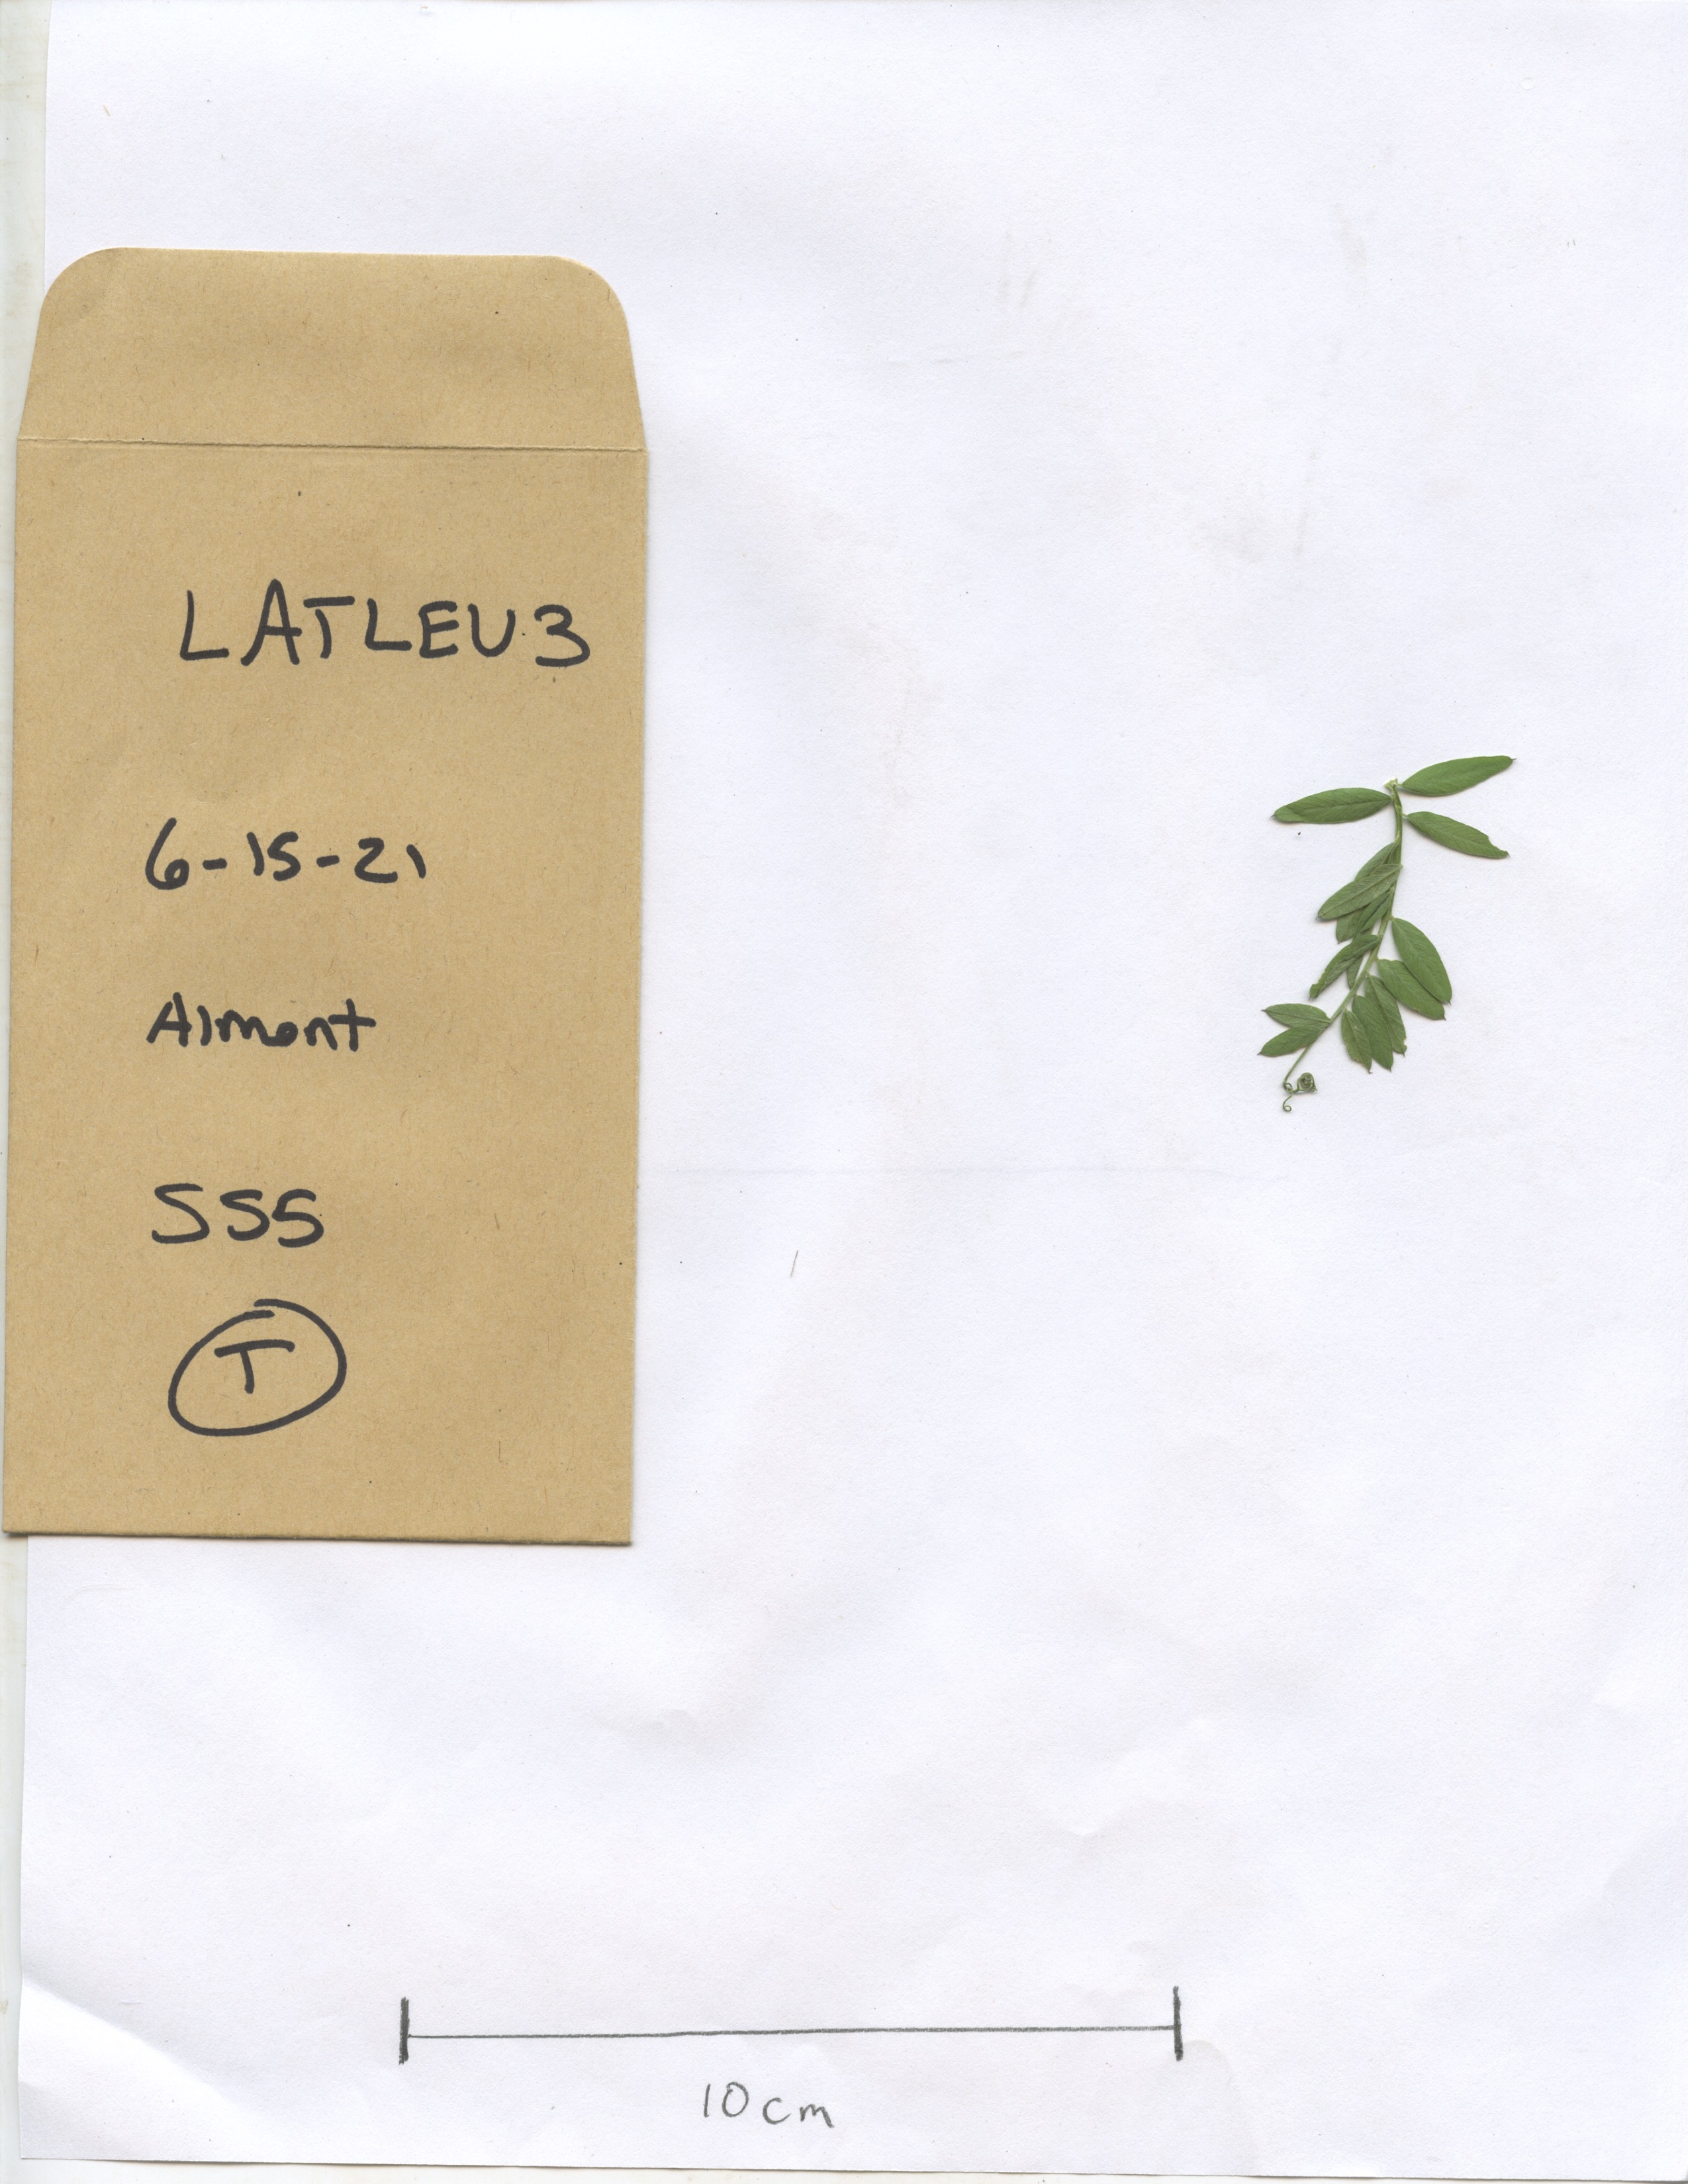 LATLEU3
6-15-21
Almont
SS5
T
10cm